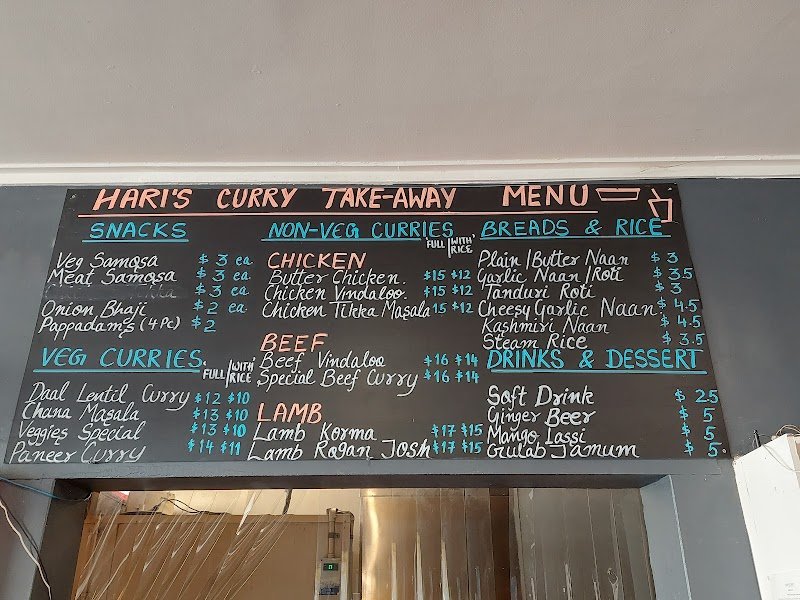 HARI'S CURRY TAKE-AWAY MENU
SNACKS
Veg Samosa $ 3 ea
Meat Samosa $ 3 ea
$ 3 ea
Onion Bhaji $ 2 ea
Pappadam's (4 Pc) $ 2
VEG CURRIES FULL / WITH RICE
Daal Lentil Curry $12 $10
Chana Masala $13 $10
Veggies Special $13 $10
Paneer Curry $14 $11
NON-VEG CURRIES FULL / WITH RICE
CHICKEN
Butter Chicken. $15 $12
Chicken Vindaloo. $15 $12
Chicken Tikka Masala 15 $12
BEEF
Beef Vindaloo $16 $14
Special Beef Curry $16 $14
LAMB
Lamb Korma $17 $15
Lamb Rogan Josh $17 $15
BREADS & RICE
Plain / Butter Naan $ 3
Garlic Naan / Roti $ 3.5
Tanduri Roti $ 3
Cheesy Garlic Naan $ 4.5
Kashmiri Naan $ 4.5
Steam Rice $ 3.5
DRINKS & DESSERT
Soft Drink $ 25
Ginger Beer $ 5
Mango Lassi $ 5
Gulab Jamum $ 5.